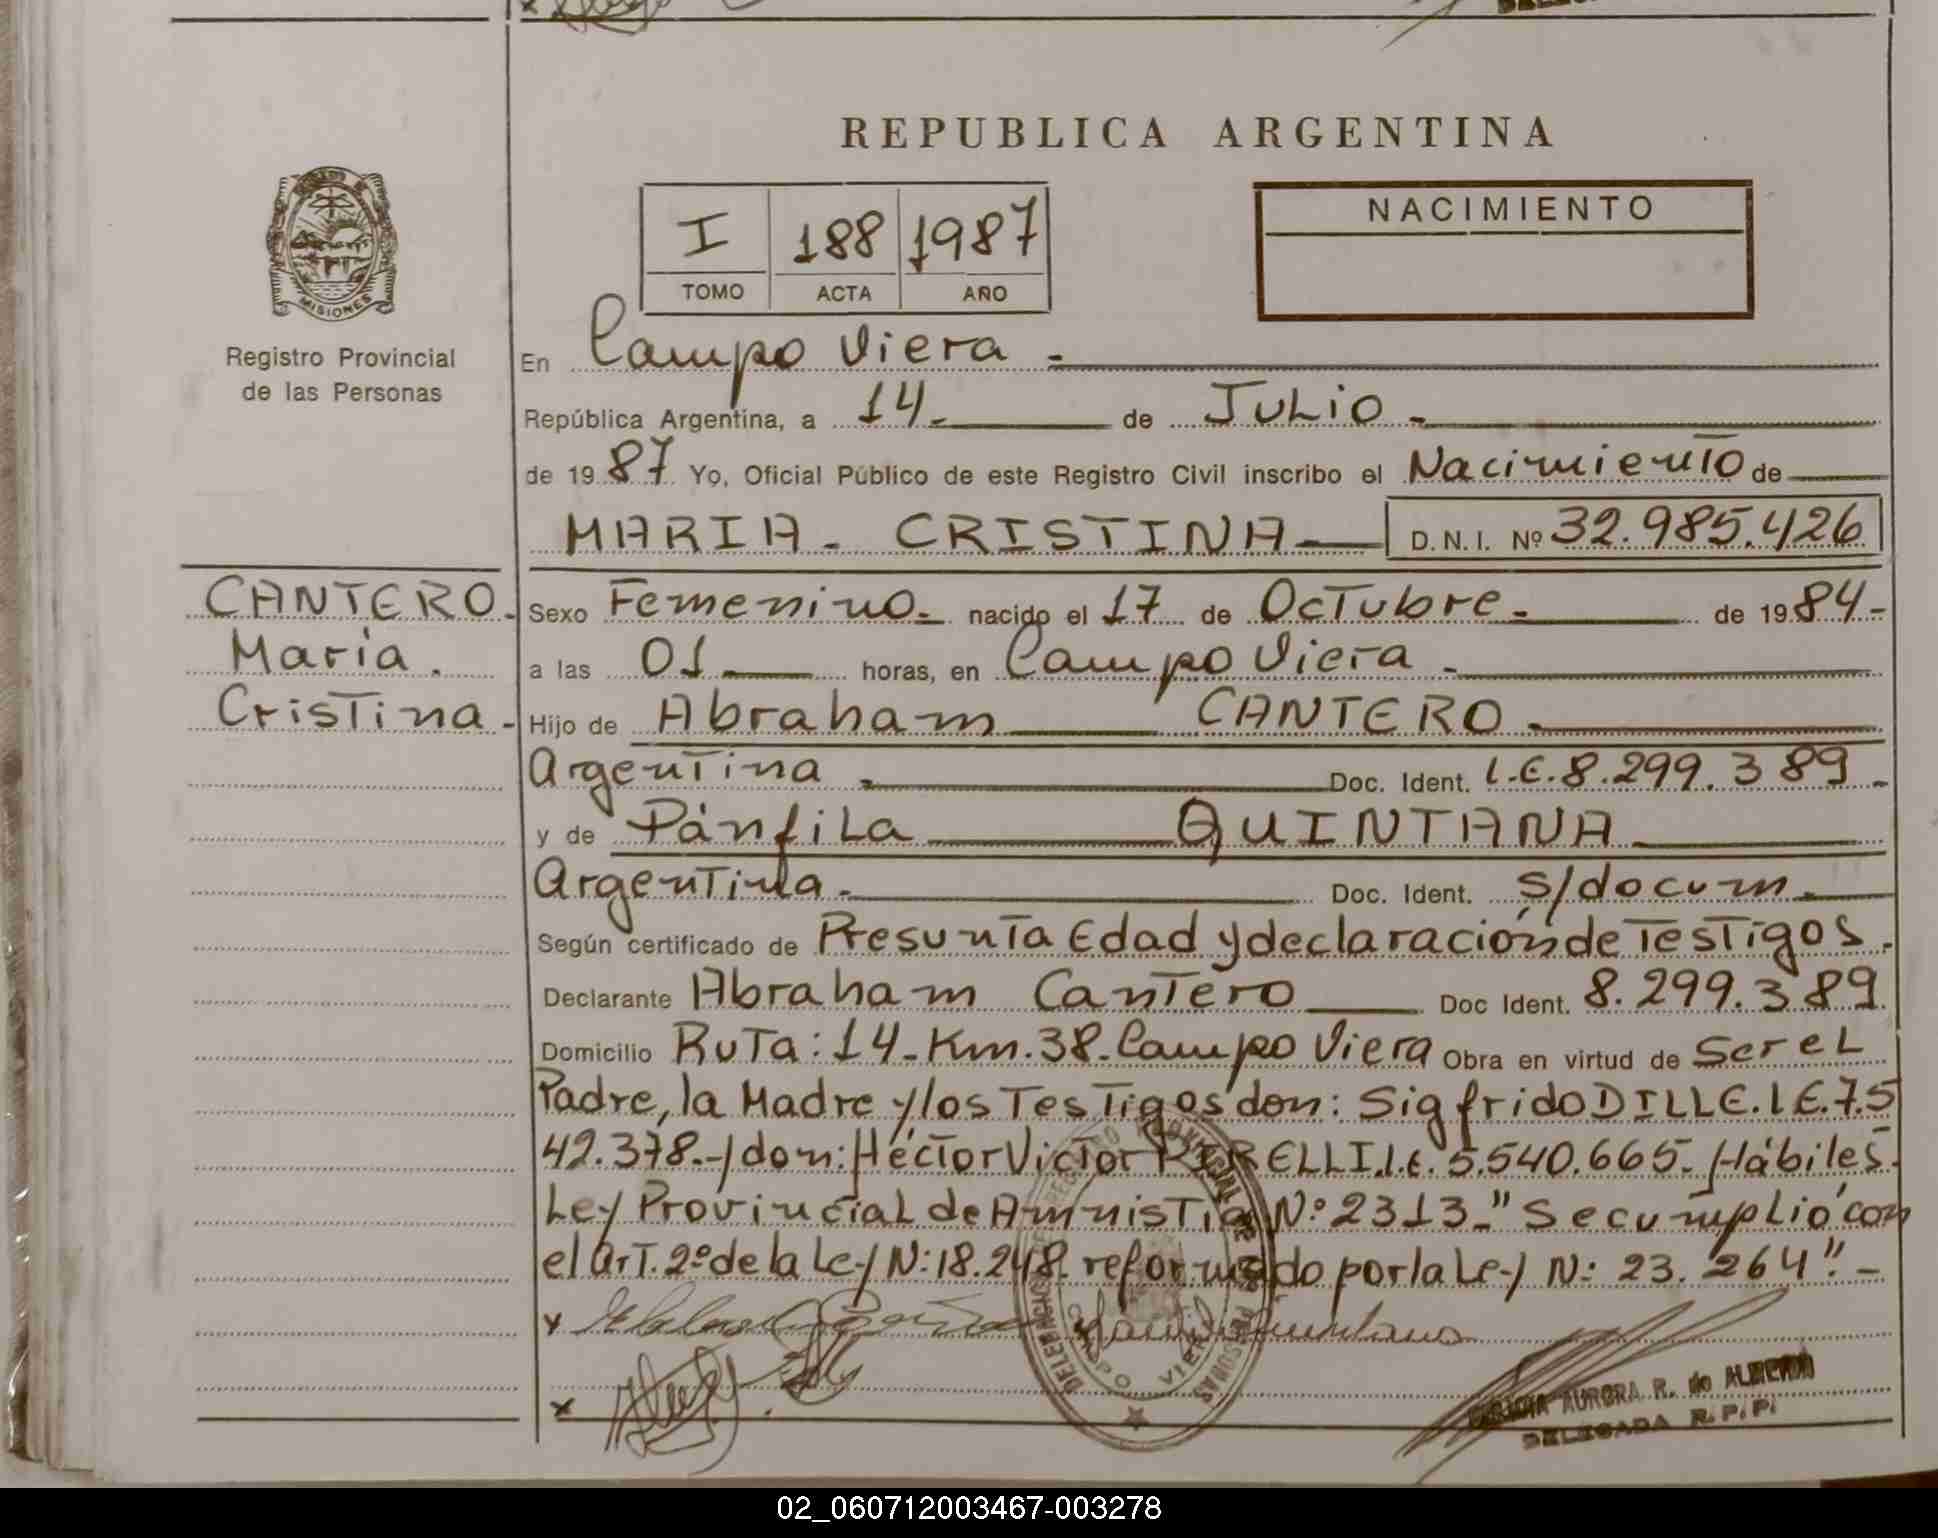 REPUBLICA ARGENTINA
NACIMIENTO
I 188 1987
TOMO ACTA AÑO
MISIONES
Registro Provincial
de las Personas
En Campo Viera -
República Argentina, a 14 - de JULIO -
de 1987 Yo, Oficial Público de este Registro Civil inscribo el Nacimiento de
MARIA - CRISTINA D.N.I. Nº 32.985.426
CANTERO -
María .
Cristina -
Sexo Femenino - nacido el 17 de Octubre - de 1984 -
a las 01 horas, en Campo Viera -
Hijo de Abraham CANTERO -
Argentina - Doc. Ident. L.E. 8.299.389 -
y de Pánfila QUINTANA
Argentina - Doc. Ident. s/docum -
Según certificado de Presunta Edad y declaración de Testigos.
Declarante Abraham Cantero Doc Ident. 8.299.389
Domicilio Ruta: 14 - Km. 38 - Campo Viera Obra en virtud de Ser el
Padre, la Madre y los Testigos don: Sigfrido DILLE. L E. 7.5
42.378.- y don: Héctor Victor PIRELLI. l.e. 5.540.665. Hábiles.
Ley Provincial de Amnistia Nº 2313 - " Se cumplió con
el art. 2º de la Ley N: 18.248 reformado por la Ley N: 23.264". -
x
Quintana
x
CAMPO VIERA
AURORA R. de
DELEGADA R.P.P.
02_060712003467-003278